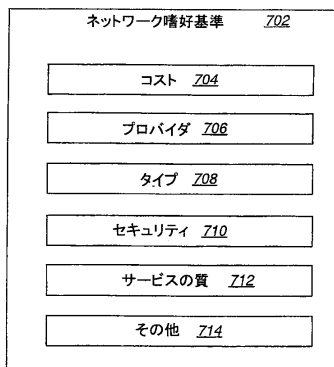 ネットワーク嗜好基準 702
コスト 704
プロバイダ 706
タイプ 708
セキュリティ 710
サービスの質 712
その他 714